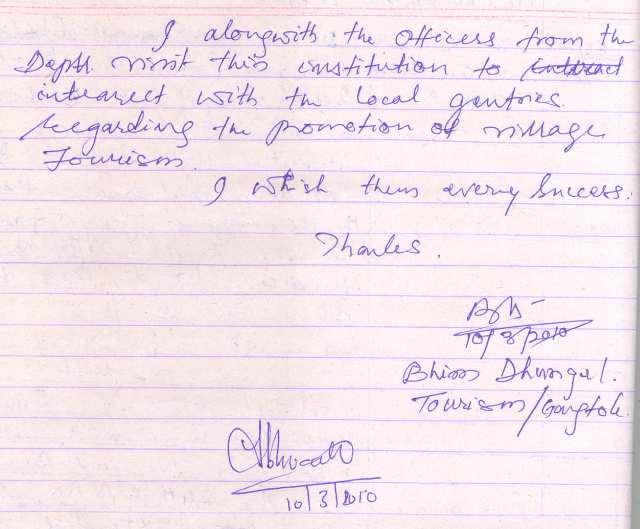 I alongwith the officers from the
Deptt. visit this institution to
interect with the local gentries
regarding the promotion of village
Tourism.
I whish them avery Success.
Thanks.
10/3/2010
Bhim Dhungel.
Tourism/Gangtok.
10/3/2010